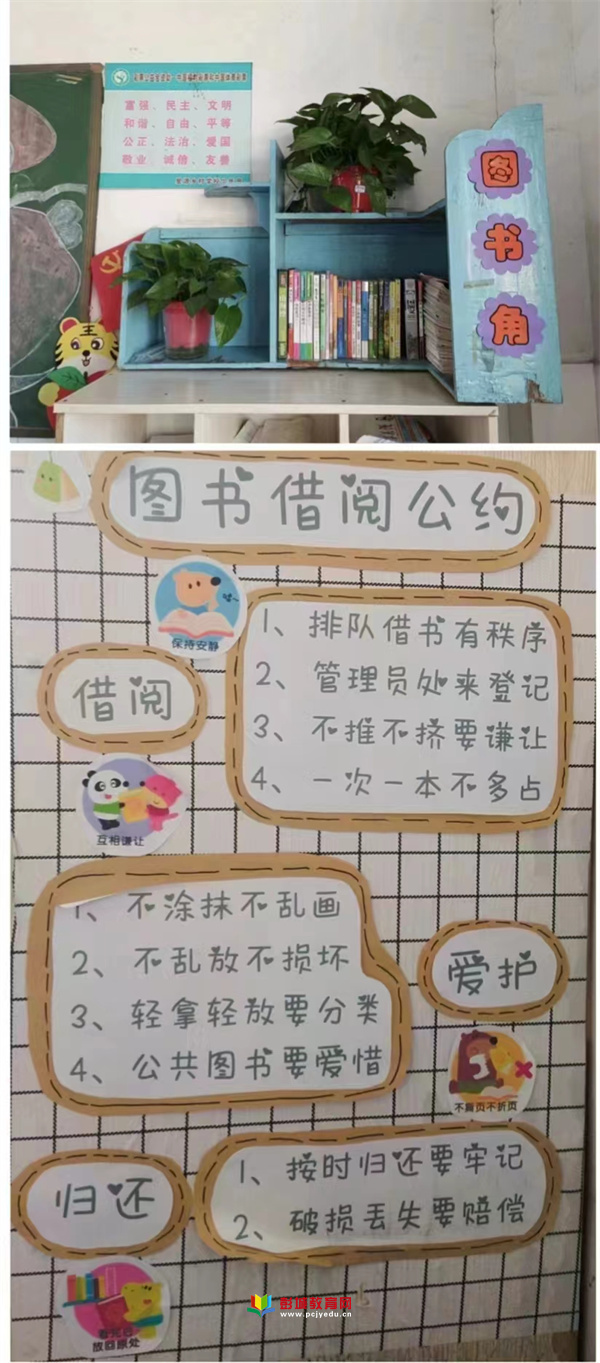 富强、民主、文明
和谐、自由、平等
公正、法治、爱国
敬业、诚信、友善
图
书
角
王
图书借阅公约
保持安静
借阅
1、排队借书有秩序
2、管理员处来登记
3、不推不挤要谦让
4、一次一本不多占
互相谦让
1、不涂抹不乱画
2、不乱放不损坏
3、轻拿轻放要分类
4、公共图书要爱惜
爱护
不撕页不折页
归还
1、按时归还要牢记
2、破损丢失要赔偿
看完后
放回原处
彭城教育网
www.pcjyedu.cn